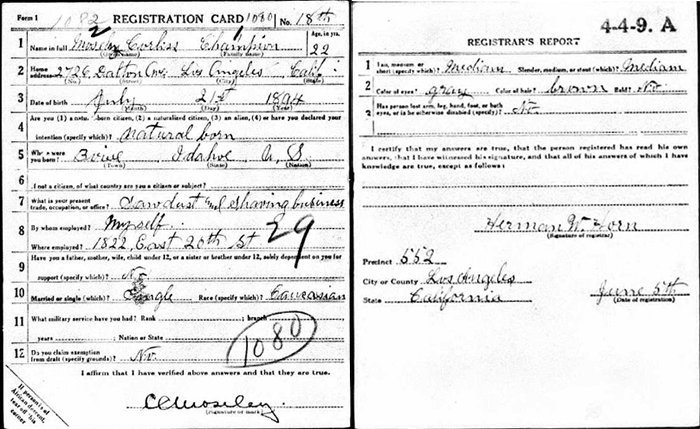 Form 1 1082 REGISTRATION CARD 1080 No. 18th
2
1 Name in full Moseley Corliss Champion Age, in yrs. 22
(Given name) (Family name)
2 Home address 2726 Dalton Ave. Los Angeles Calif.
(No.) (Street) (City) (State)
3 Date of birth July 21st 1894
(Month) (Day) (Year)
4 Are you (1) a natural-born citizen, (2) a naturalized citizen, (3) an alien, (4) or have you declared your
intention (specify which)? natural born
5 Where were you born? Boise Idahoe U. S.
(Town) (State) (Nation)
6 If not a citizen, of what country are you a citizen or subject?
7 What is your present trade, occupation, or office? Sawdust and shaving business
8 By whom employed? Myself
Where employed? 1822 East 20th St
29
9 Have you a father, mother, wife, child under 12, or a sister or brother under 12, solely dependent on you for
support (specify which)? No
10 Married or single (which)? Single Race (specify which)? Caucasian
11 What military service have you had? Rank branch
years Nation or State
1080
12 Do you claim exemption from draft (specify grounds)? No
I affirm that I have verified above answers and that they are true.
C C Moseley
(Signature or mark)
If person is of African descent, tear off this corner
4-4-9. A
REGISTRAR'S REPORT
1 Tall, medium, or short (specify which)? Medium Slender, medium, or stout (which)? Medium
2 Color of eyes? gray Color of hair? brown Bald? No
3 Has person lost arm, leg, hand, foot, or both eyes, or is he otherwise disabled (specify)? No
I certify that my answers are true, that the person registered has read his own
answers, that I have witnessed his signature, and that all of his answers of which I have
knowledge are true, except as follows:
Herman W. Horn
(Signature of registrar)
Precinct 552
City or County Los Angeles
State California June 5th
(Date of registration)